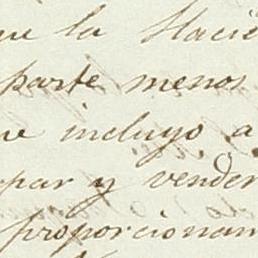 ue la Hacie
parte menos
ue incluyo a
par y vender
proporcionan